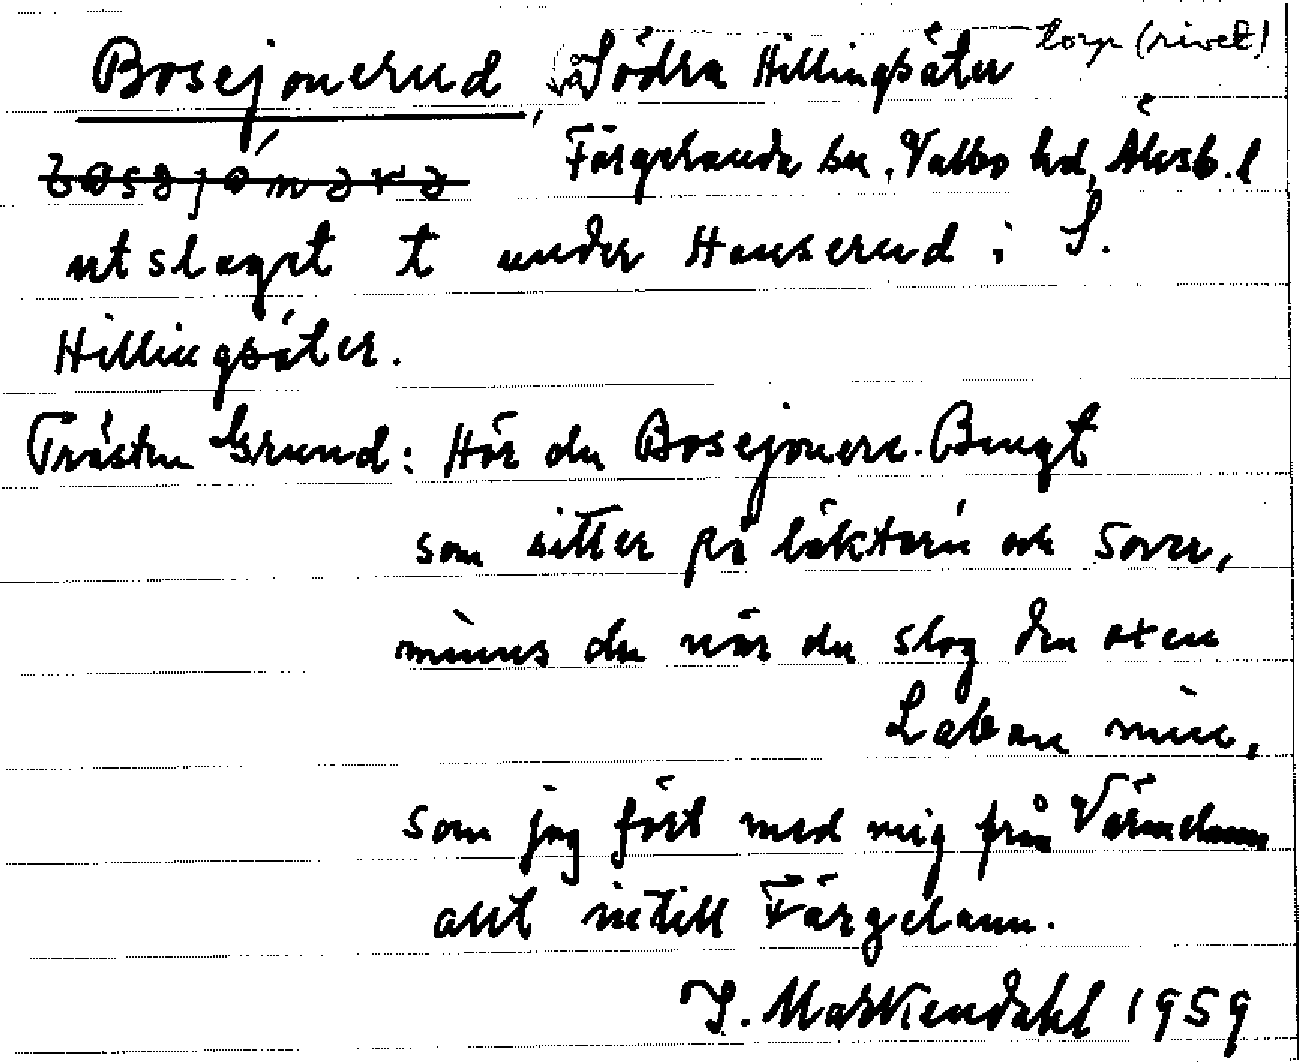 Bosejonerud, Södra Hillingsäter torp (rivet)
Färgelanda sn. Valbo hd, Älvsb. l
utslaget t under Hanserud i S.
Hillingsäter.
Prästen Grund: Hör du Bosejonere-Bengt
som sitter på läktarn och sover,
minns du när du slog den oxen
Laban min,
som jag fört med mig från Värmelann
allt intill Färgelann.
I. Markendahl 1959